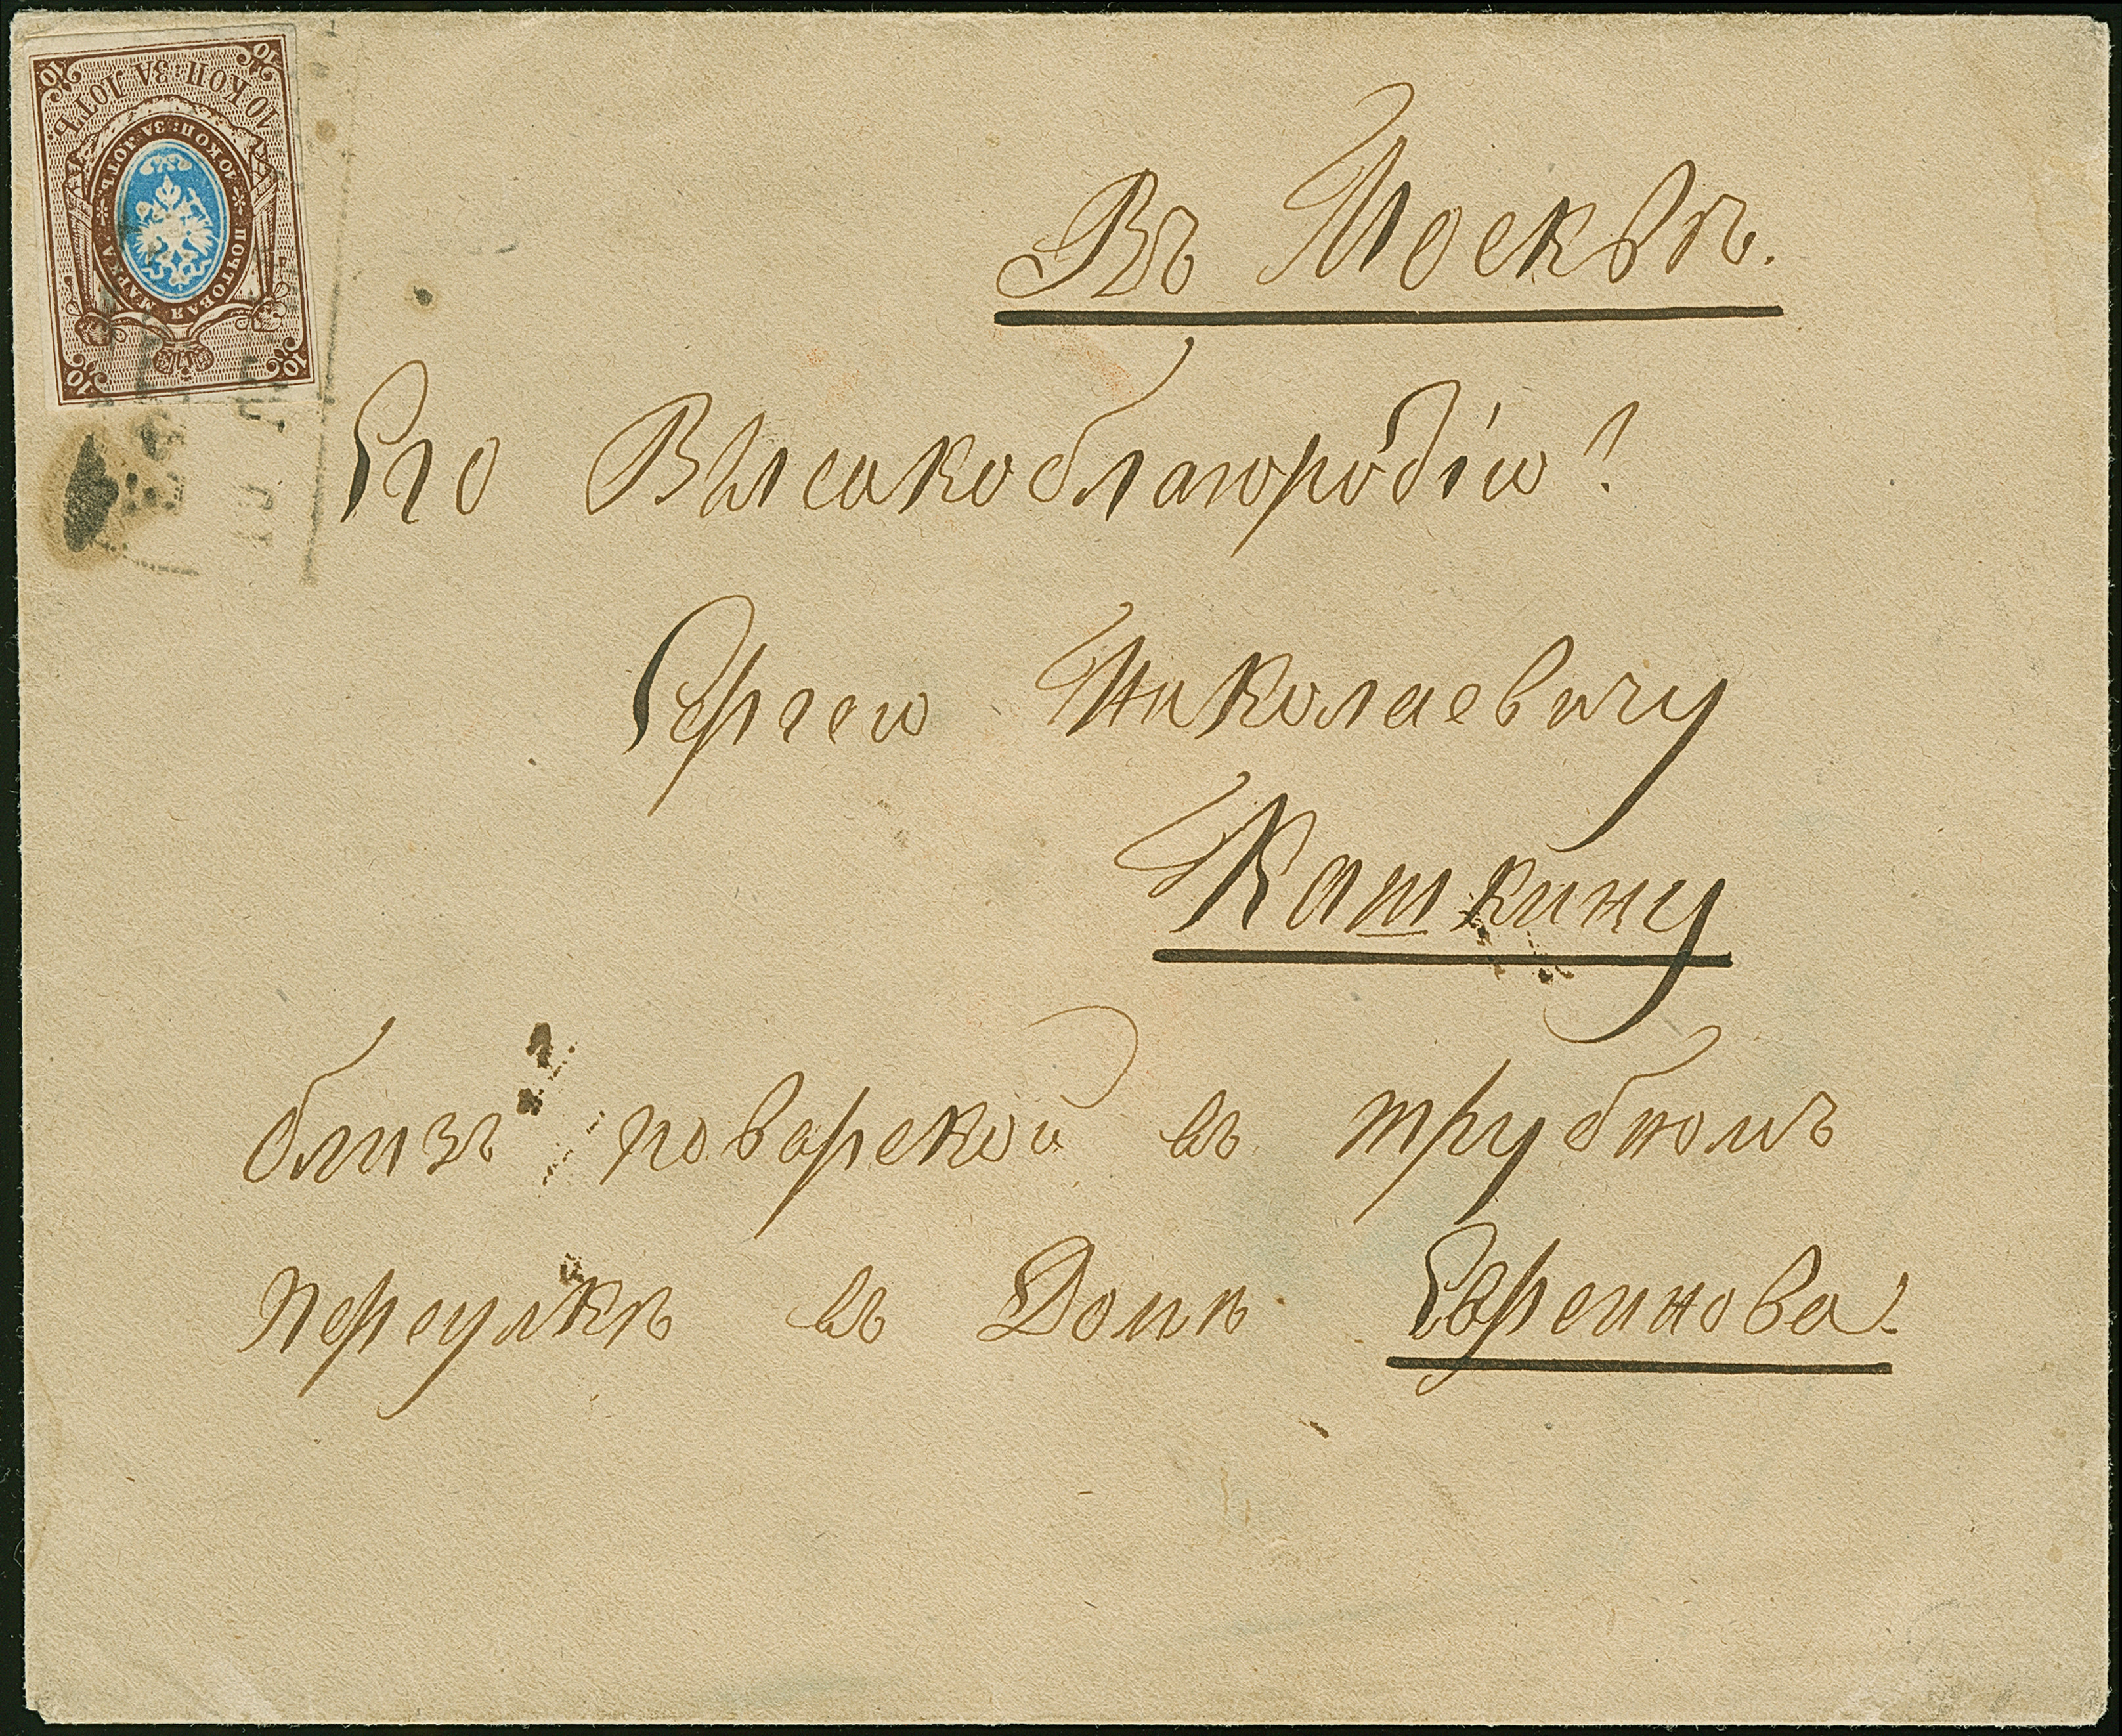 10
10
10 КОП: ЗА ЛОТЪ.
ПОЧТОВАЯ МАРКА * 10 КОП: ЗА ЛОТЪ. *
10
10
Въ Москвѣ.
Его Высокоблагородію!
Сергею Николаевичу
Кашкину
близъ поварской въ трубномъ
переулкѣ въ Домѣ